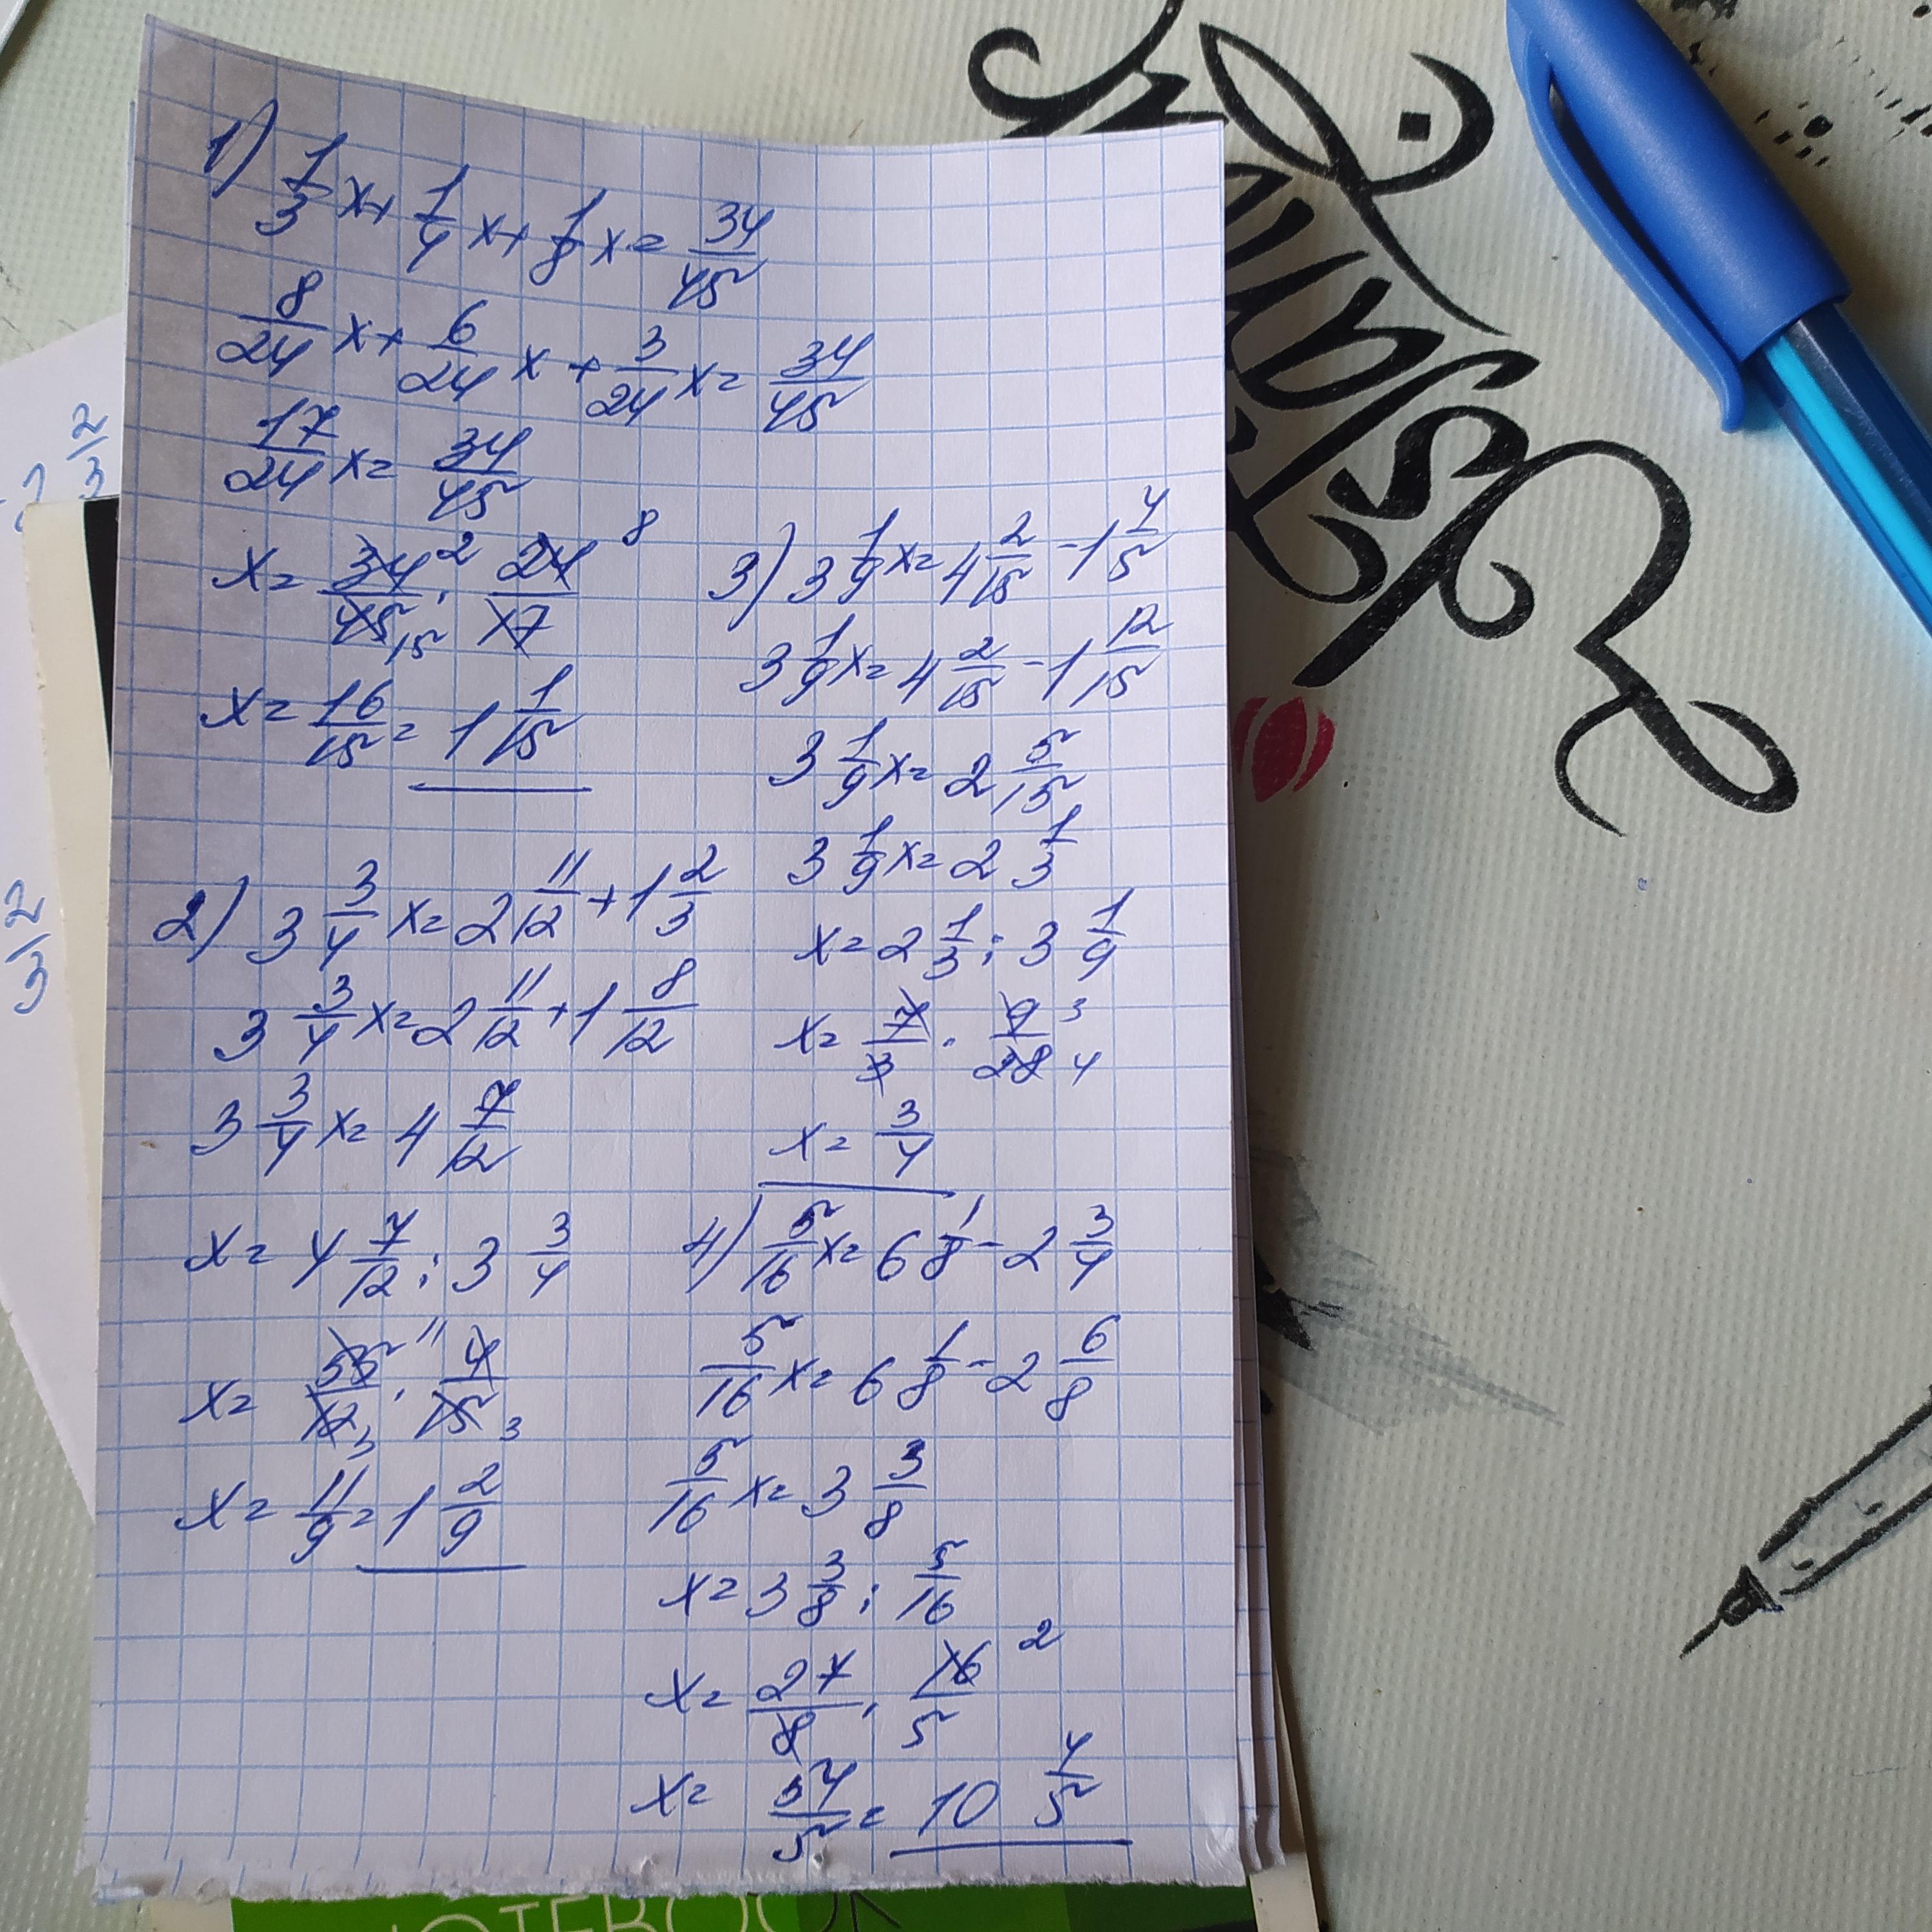 1) 1/3 x + 1/4 x + 1/8 x = 34/45
8/24 x + 6/24 x + 3/24 x = 34/45
17/24 x = 34/45
x = 34/45 · 24/17 2 8 15
x = 16/15 = 1 1/15
2) 3 3/4 x = 2 11/12 + 1 2/3
3 3/4 x = 2 11/12 + 1 8/12
3 3/4 x = 4 7/12
x = 4 7/12 : 3 3/4
x = 55/12 · 4/15 11 3 3
x = 11/9 = 1 2/9
3) 3 1/9 x = 4 2/15 - 1 4/5
3 1/9 x = 4 2/15 - 1 12/15
3 1/9 x = 2 5/15
3 1/9 x = 2 1/3
x = 2 1/3 : 3 1/9
x = 7/3 · 9/28 3 4
x = 3/4
4) 5/16 x = 6 1/8 - 2 3/4
5/16 x = 6 1/8 - 2 6/8
5/16 x = 3 3/8
x = 3 3/8 : 5/16
x = 27/8 · 16/5 2
x = 54/5 = 10 4/5
2/3
3 2
NOTEBOOK